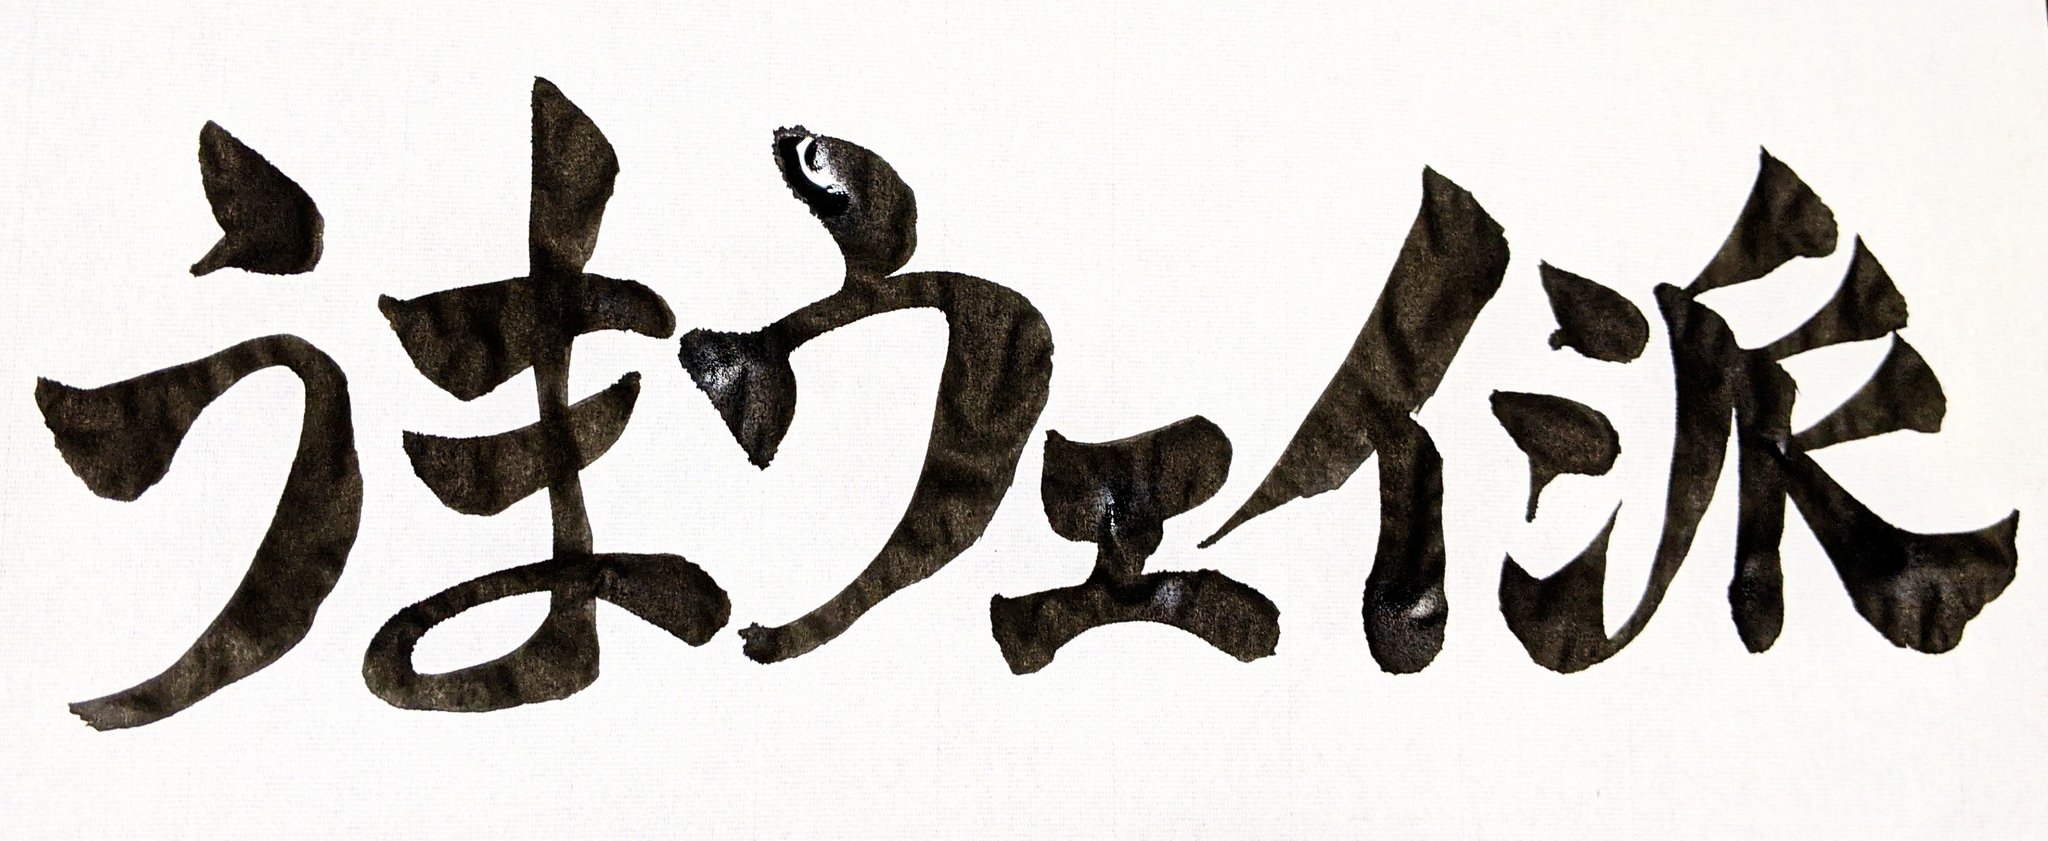 うまウェイ派